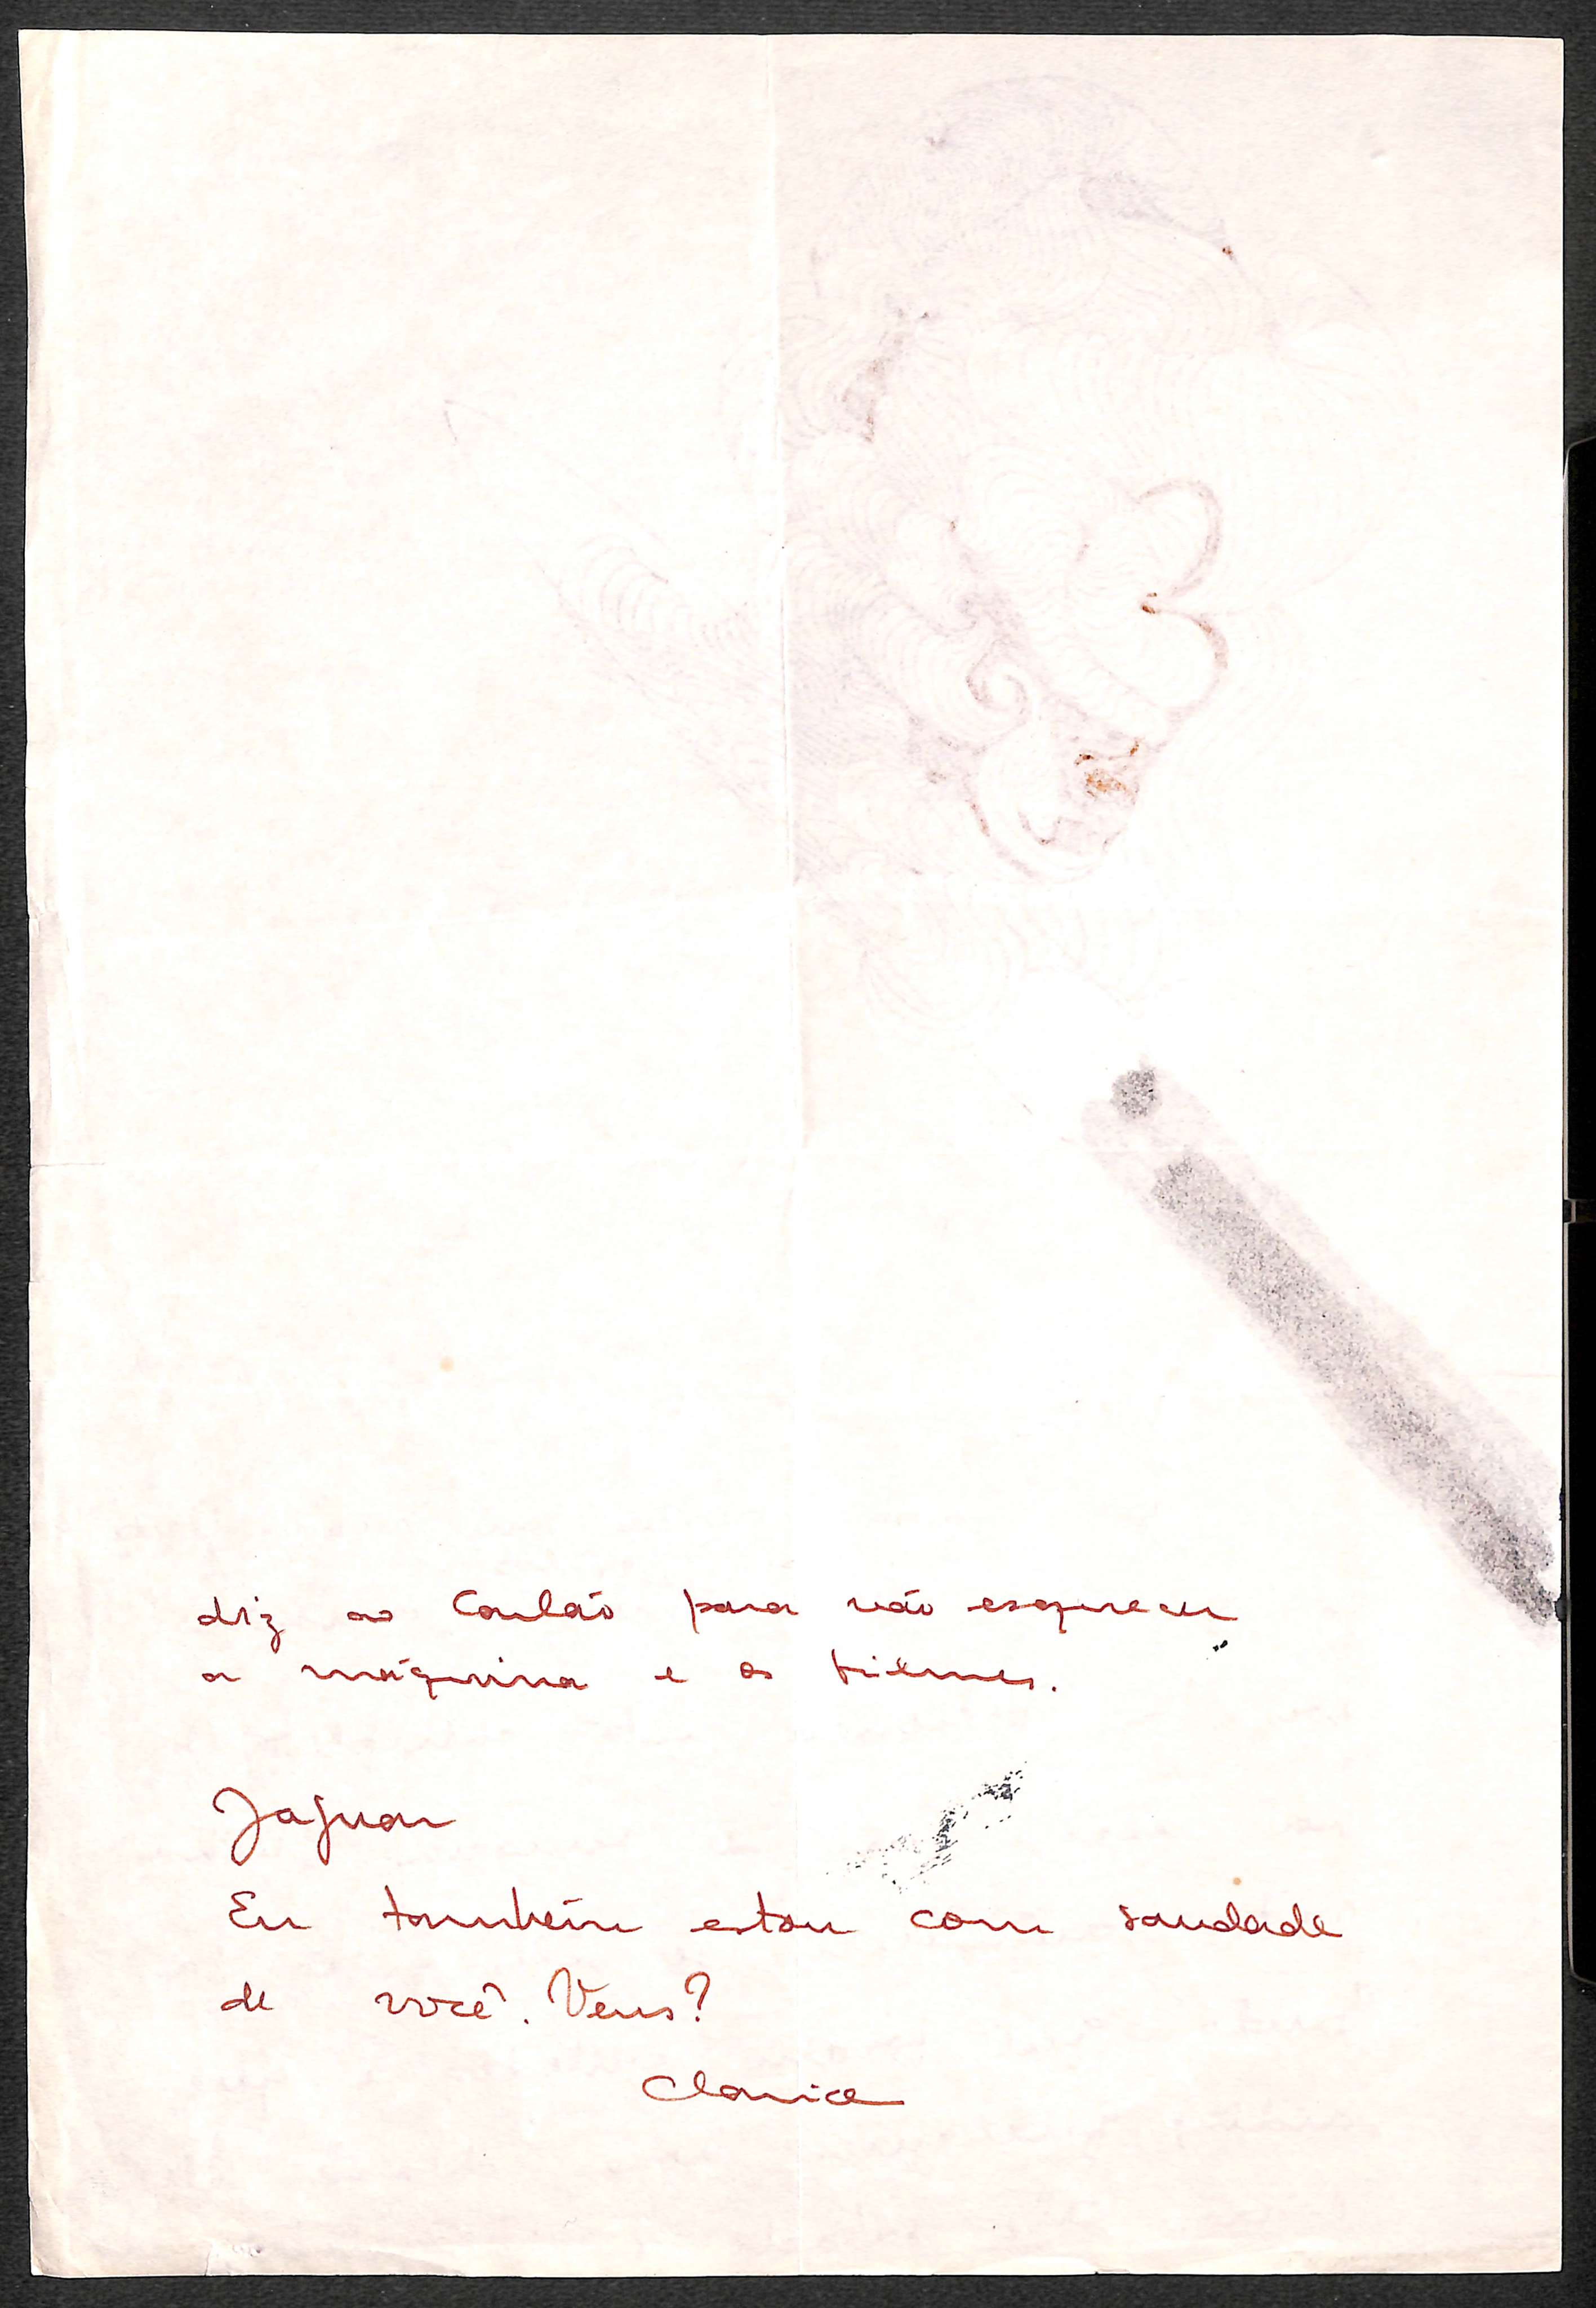 diz ao Caulão para não esquecer
a máquina e os filmes.
Jaguar
Eu também estou com saudade
de você. Vens?
Clarice